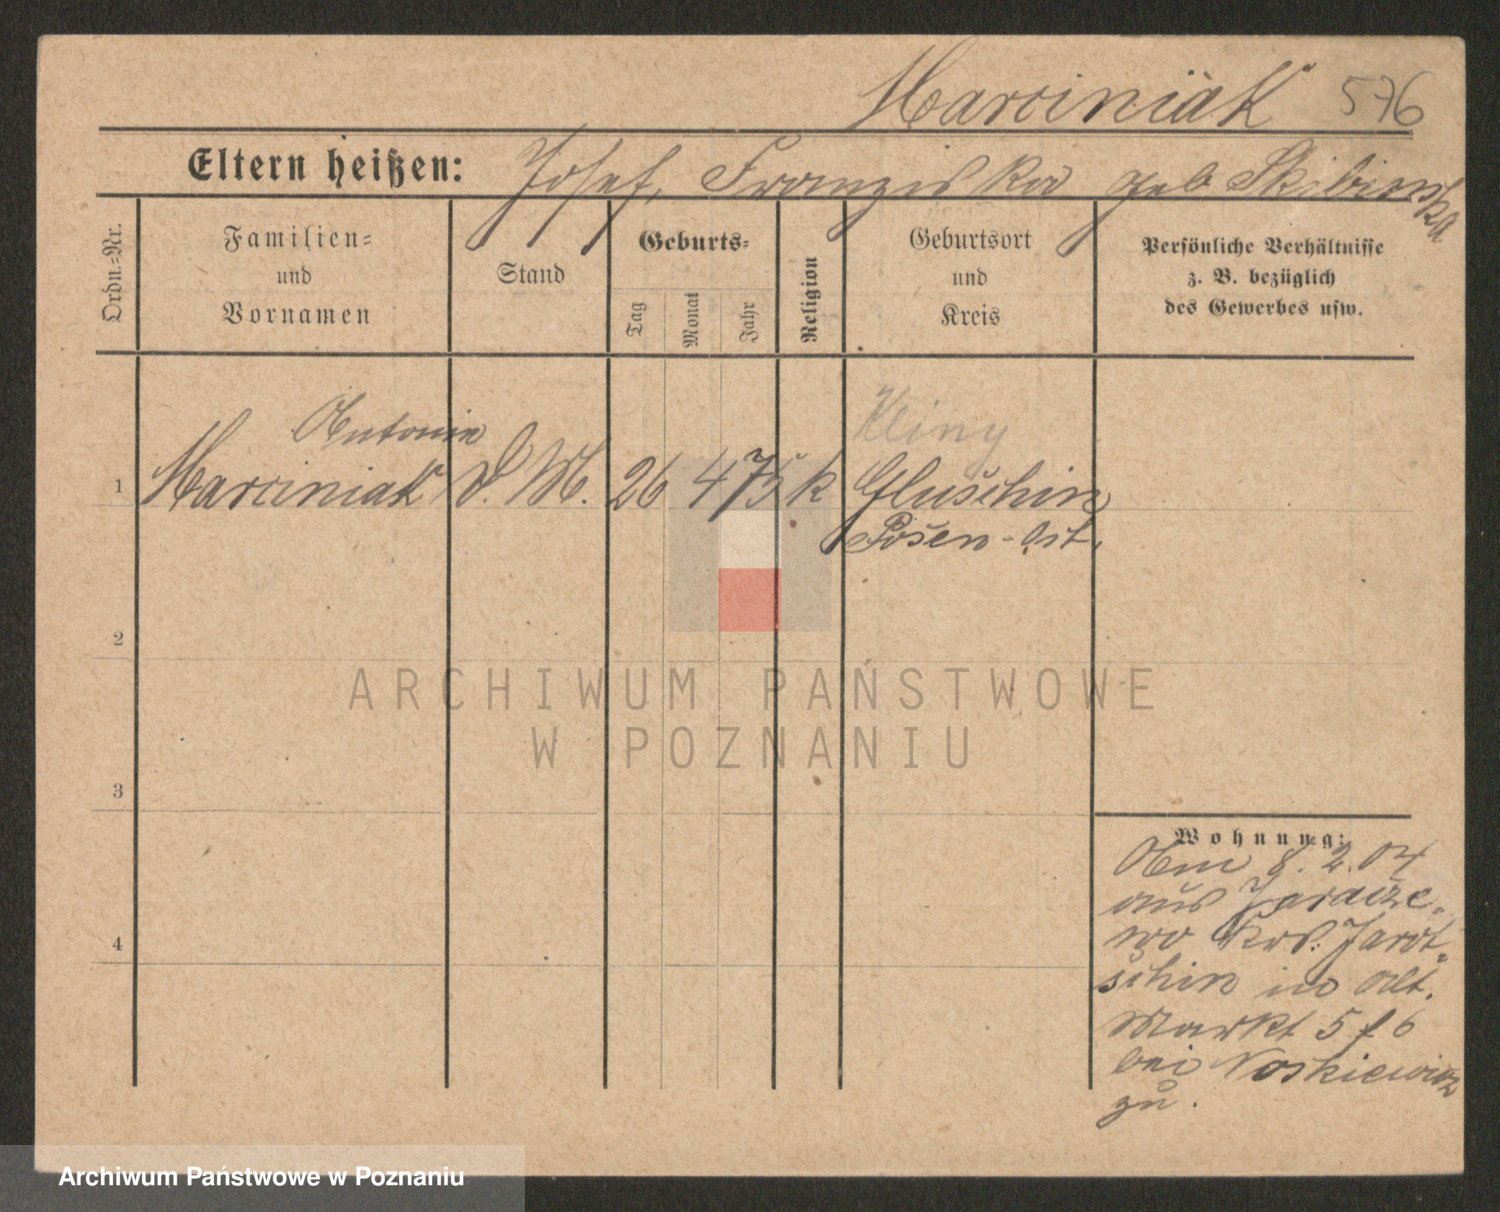 Marciniak 576
Eltern heißen: Josef, Franziska geb Skibinska
Ordn.=Nr.
Familien=
und
Vornamen
Stand
Geburts=
Tag
Monat
Jahr
Religion
Geburtsort
und
Kreis
Persönliche Verhältnisse
z. B. bezüglich
des Gewerbes usw.
Antonie
Kliny
1 Marciniak D. M. 26 4 75 k Gluschin
Posen-Ost.
2
3
4
Wohnung:
Am 8.2.04
aus Jaracze-
wo Krs. Jarot-
schin in Alt.
Markt 5/6
bei Noskiewicz
zu.
ARCHIWUM PAŃSTWOWE
W POZNANIU
Archiwum Państwowe w Poznaniu